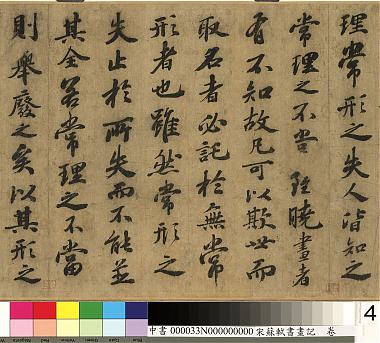 理常形之失人皆知之
常理之不當雖曉畫者
有不知故凡可以欺世而
取名者必託於無常
形者也雖然常形之
失止於所失而不能並
其全若常理之不當
則舉廢之矣以其形之
中書 000033N000000000 宋蘇軾書畫記 卷
4